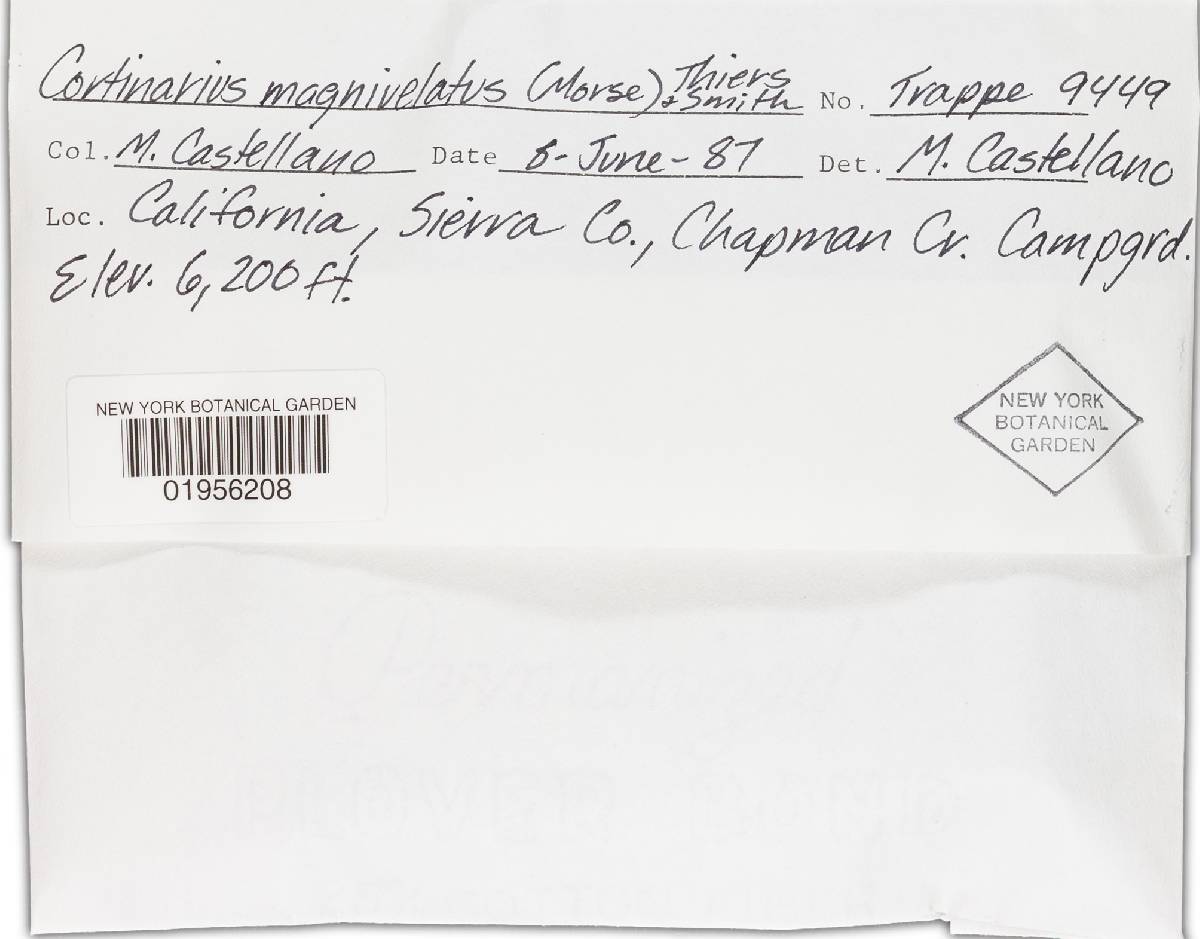 Cortinarius magnivelatus (Morse) Thiers & Smith No. Trappe 9449
Col. M. Castellano Date 8-June-87 Det. M. Castellano
Loc. California, Sierra Co., Chapman Cr. Campgrd.
Elev. 6,200 ft.
NEW YORK BOTANICAL GARDEN
01956208
NEW YORK
BOTANICAL
GARDEN